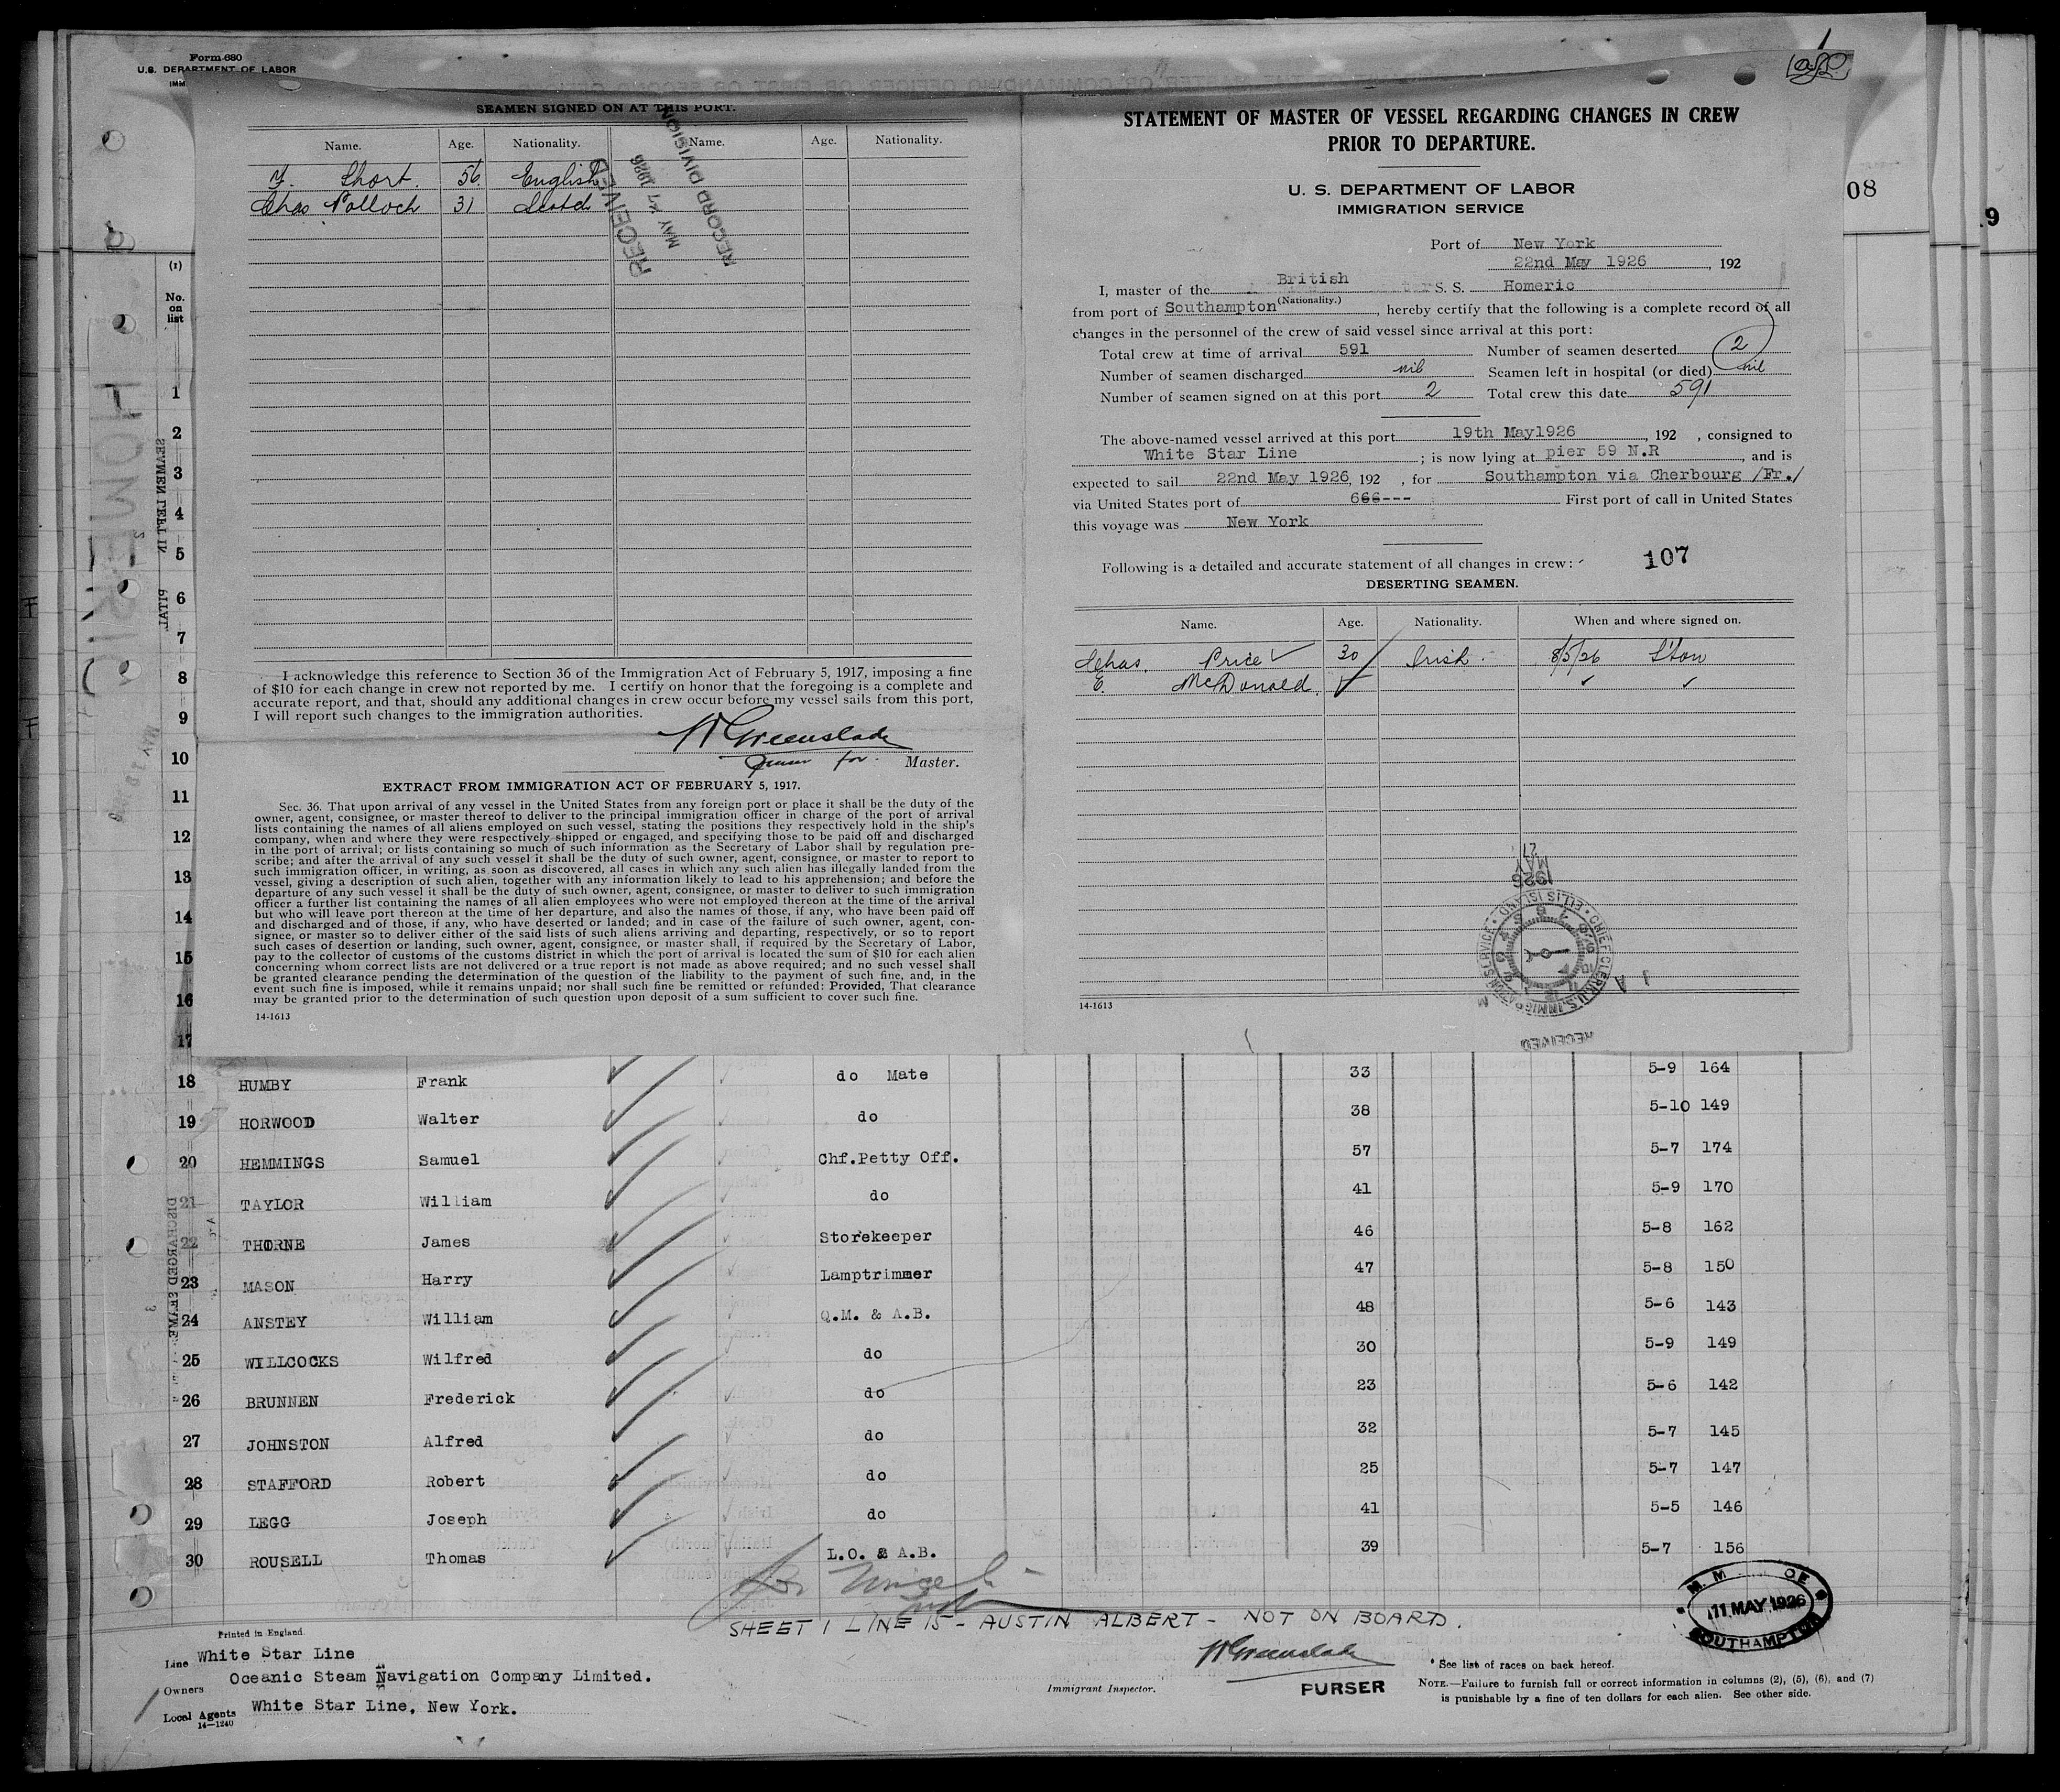 Form 680
U.S. DEPARTMENT OF LABOR
SEAMEN SIGNED ON AT THIS PORT.
Name. Age. Nationality. Name. Age. Nationality.
Short. 56 English
Chas Pollock 31 Scotch
RECEIVED
MAY 27 1926
RECORD DIVISION
I acknowledge this reference to Section 36 of the Immigration Act of February 5, 1917, imposing a fine
of $10 for each change in crew not reported by me. I certify on honor that the foregoing is a complete and
accurate report, and that, should any additional changes in crew occur before my vessel sails from this port,
I will report such changes to the immigration authorities.
Greenslade
Purser for Master.
EXTRACT FROM IMMIGRATION ACT OF FEBRUARY 5, 1917.
Sec. 36. That upon arrival of any vessel in the United States from any foreign port or place it shall be the duty of the
owner, agent, consignee, or master thereof to deliver to the principal immigration officer in charge of the port of arrival
lists containing the names of all aliens employed on such vessel, stating the positions they respectively hold in the ship's
company, when and where they were respectively shipped or engaged, and specifying those to be paid off and discharged
in the port of arrival; or lists containing so much of such information as the Secretary of Labor shall by regulation pre-
scribe; and after the arrival of any such vessel it shall be the duty of such owner, agent, consignee, or master to report to
such immigration officer, in writing, as soon as discovered, all cases in which any such alien has illegally landed from the
vessel, giving a description of such alien, together with any information likely to lead to his apprehension; and before the
departure of any such vessel it shall be the duty of such owner, agent, consignee, or master to deliver to such immigration
officer a further list containing the names of all alien employees who were not employed thereon at the time of the arrival
but who will leave port thereon at the time of her departure, and also the names of those, if any, who have been paid off
and discharged and of those, if any, who have deserted or landed; and in case of the failure of such owner, agent, con-
signee, or master so to deliver either of the said lists of such aliens arriving and departing, respectively, or so to report
such cases of desertion or landing, such owner, agent, consignee, or master shall, if required by the Secretary of Labor,
pay to the collector of customs of the customs district in which the port of arrival is located the sum of $10 for each alien
concerning whom correct lists are not delivered or a true report is not made as above required; and no such vessel shall
be granted clearance pending the determination of the question of the liability to the payment of such fine, and, in the
event such fine is imposed, while it remains unpaid; nor shall such fine be remitted or refunded: Provided, That clearance
may be granted prior to the determination of such question upon deposit of a sum sufficient to cover such fine.
14-1613
STATEMENT OF MASTER OF VESSEL REGARDING CHANGES IN CREW
PRIOR TO DEPARTURE.
U. S. DEPARTMENT OF LABOR
IMMIGRATION SERVICE
Port of New York
22nd May 1926, 192
I, master of the British S. S. Homeric
(Nationality.)
from port of Southampton, hereby certify that the following is a complete record of all
changes in the personnel of the crew of said vessel since arrival at this port:
Total crew at time of arrival 591 Number of seamen deserted 2
Number of seamen discharged nil Seamen left in hospital (or died) nil
Number of seamen signed on at this port 2 Total crew this date 591
The above-named vessel arrived at this port 19th May1926, 192 , consigned to
White Star Line ; is now lying at pier 59 N.R , and is
expected to sail 22nd May 1926, 192 , for Southampton via Cherbourg /Fr./
via United States port of 666--- First port of call in United States
this voyage was New York
Following is a detailed and accurate statement of all changes in crew:
107
DESERTING SEAMEN.
Name. Age. Nationality. When and where signed on.
Chas. Price 30 Irish. 8/5/26 S'ton
E. McDonald
MAY 27 1926
CHIEF CLERK U.S. IMMIGRATION SERVICE ELLIS ISLAND
RECEIVED
14-1613
08
9
HOMERIC
(1)
No.
on
list
1
2
3
4
5
6
7
8
9
10
11
12
13
14
15
16
17
18 HUMBY Frank do Mate 33 5-9 164
19 HORWOOD Walter do 38 5-10 149
20 HEMMINGS Samuel Chf.Petty Off. 57 5-7 174
21 TAYLOR William do 41 5-9 170
22 THORNE James Storekeeper 46 5-8 162
23 MASON Harry Lamptrimmer 47 5-8 150
24 ANSTEY William Q.M. & A.B. 48 5-6 143
25 WILLCOCKS Wilfred do 30 5-9 149
26 BRUNNEN Frederick do 23 5-6 142
27 JOHNSTON Alfred do 32 5-7 145
28 STAFFORD Robert do 25 5-7 147
29 LEGG Joseph do 41 5-5 146
30 ROUSELL Thomas L.O. & A.B. 39 5-7 156
SHEET 1 LINE 15 - AUSTIN ALBERT - NOT ON BOARD.
11 MAY 1926
SOUTHAMPTON
Printed in England.
Line White Star Line
Owners Oceanic Steam Navigation Company Limited.
Local Agents White Star Line, New York.
14-1240
Immigrant Inspector.
Greenslade
PURSER
* See list of races on back hereof.
NOTE.—Failure to furnish full or correct information in columns (2), (5), (6), and (7)
is punishable by a fine of ten dollars for each alien. See other side.